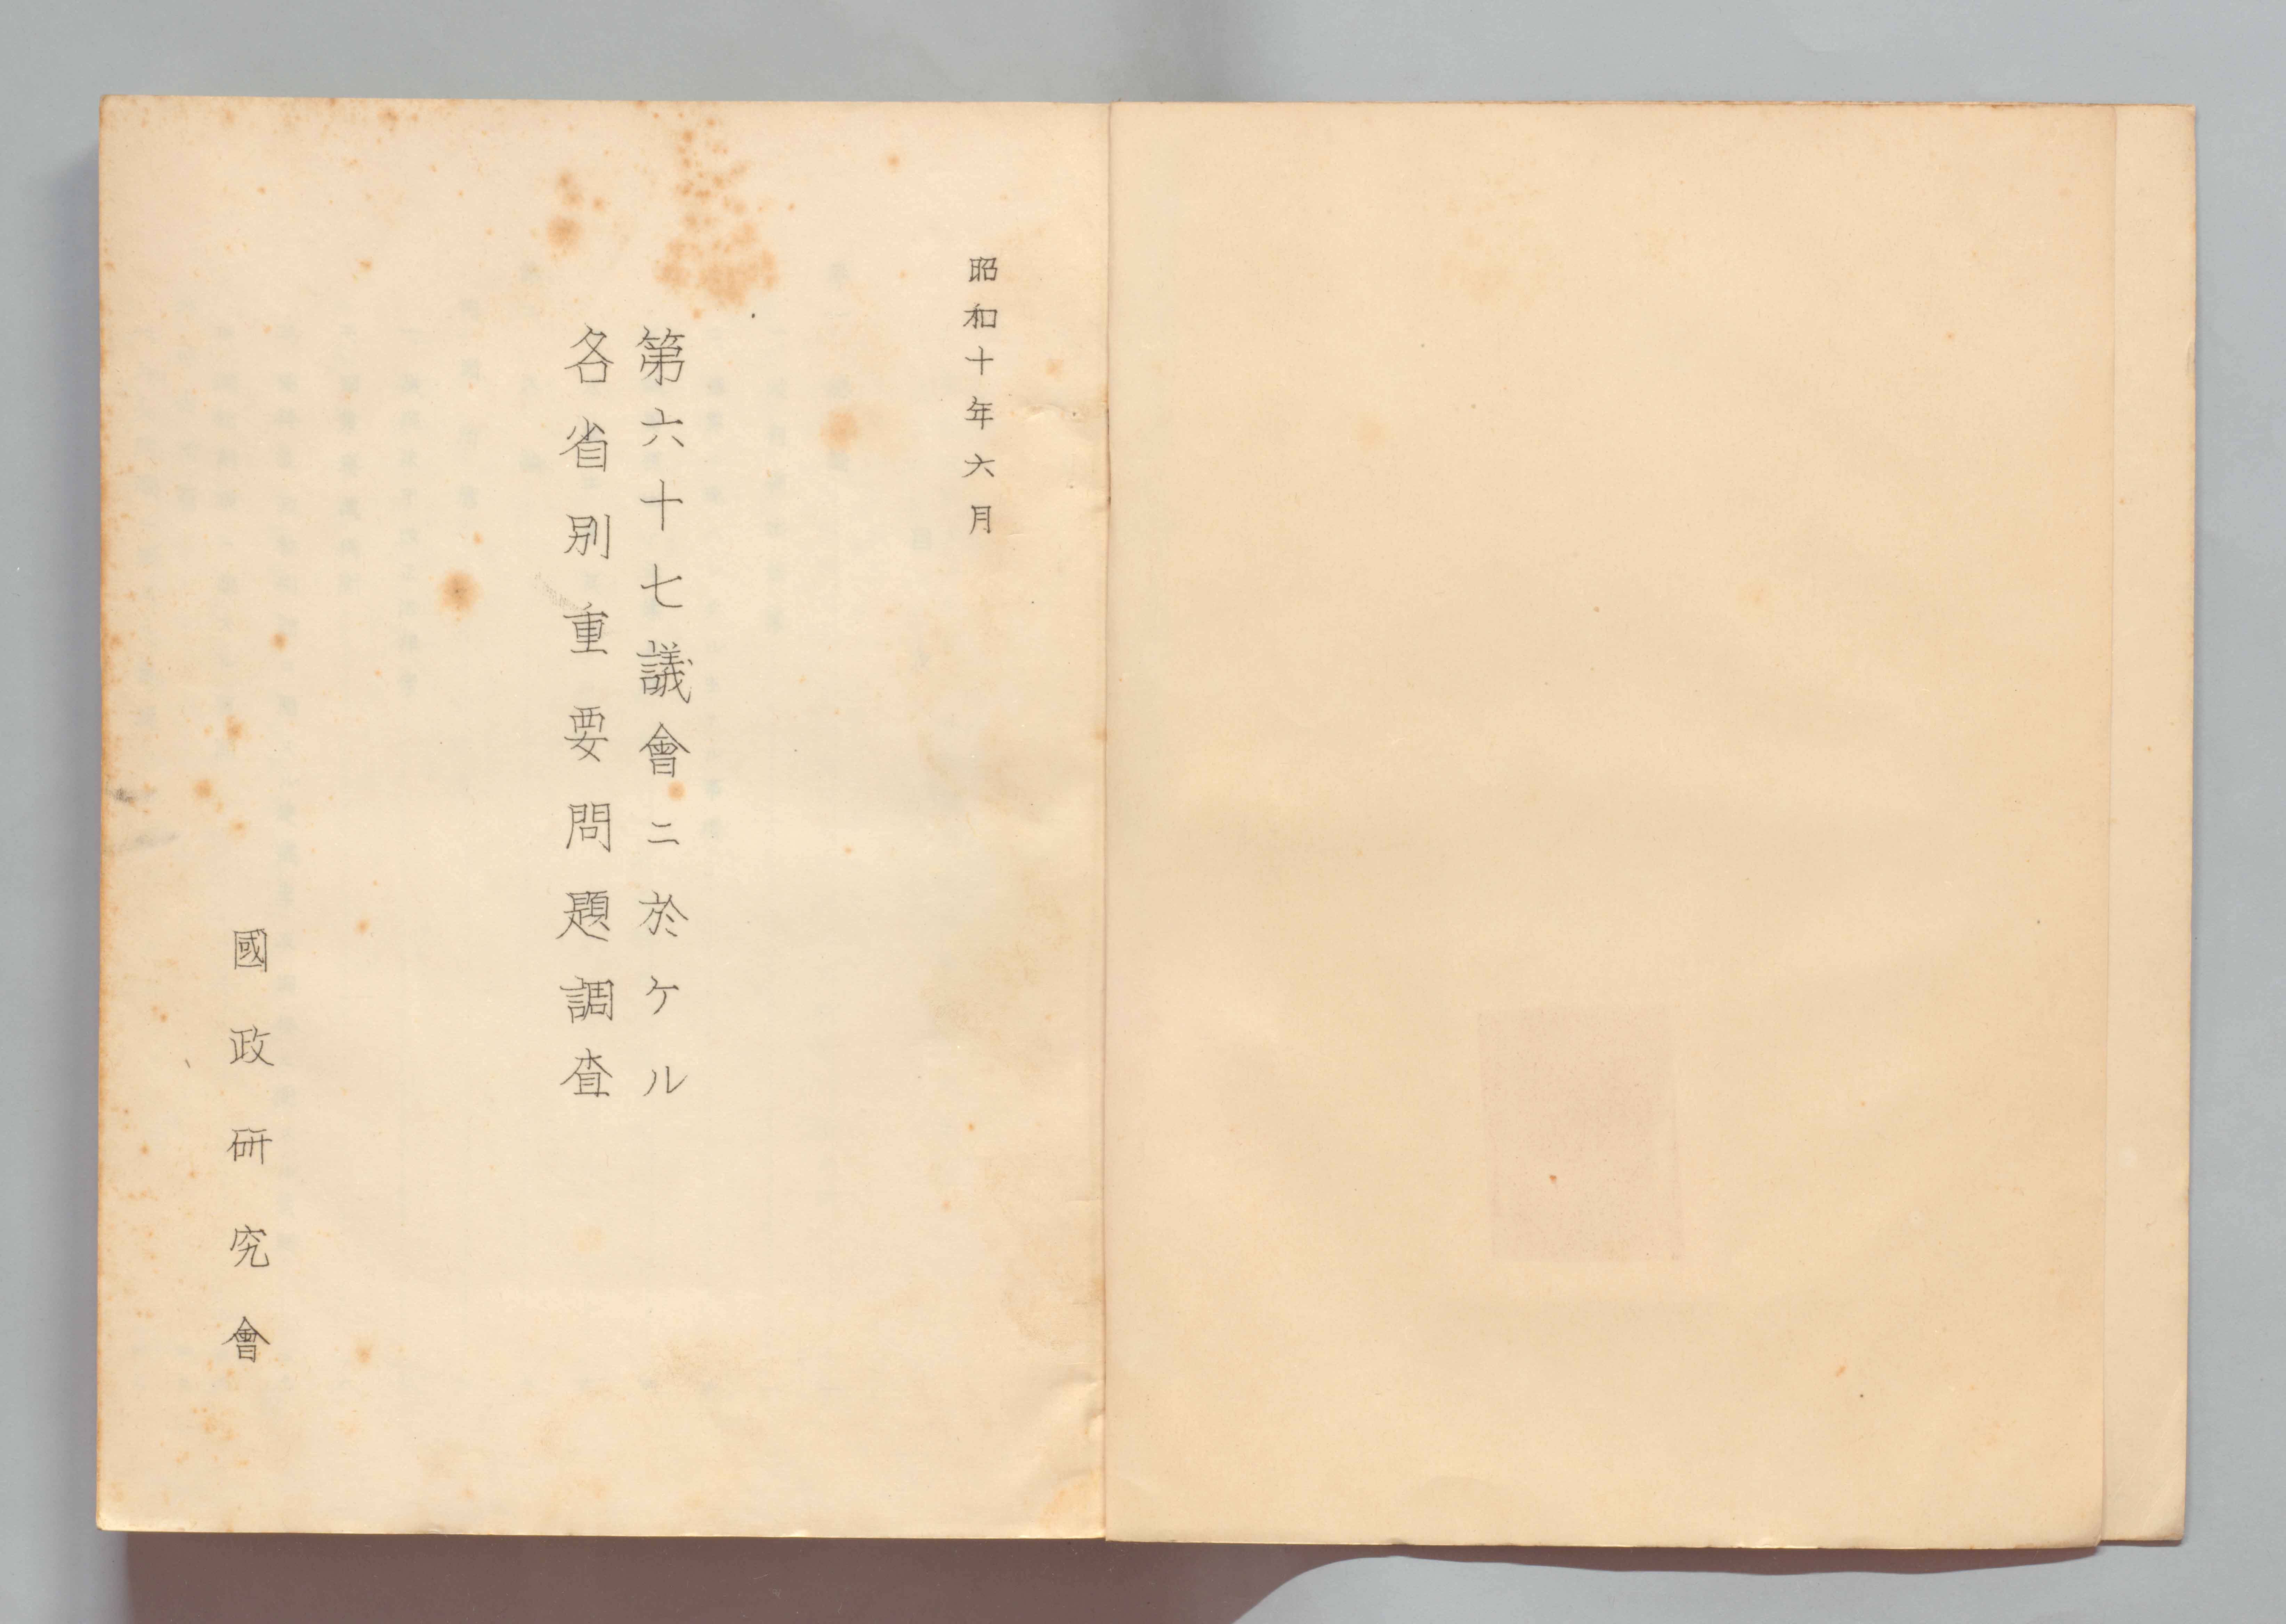 昭和十年六月
第六十七議會ニ於ケル
各省別重要問題調査
國政研究會